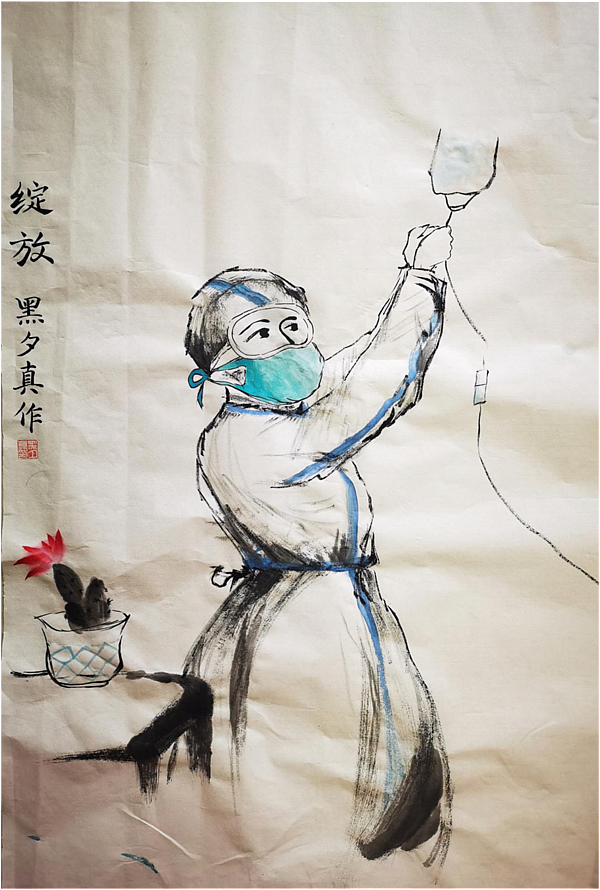 绽放
黑夕真作